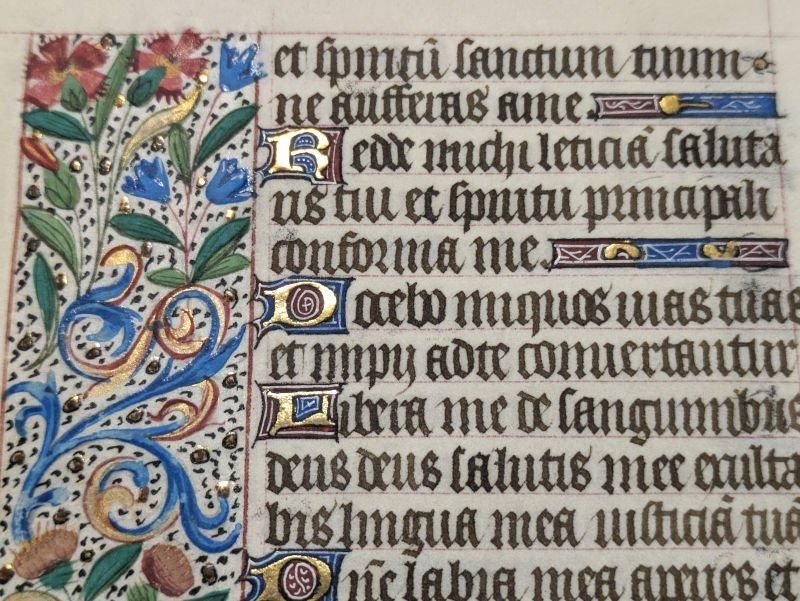 et spiritū sanctum tuum
ne aufferas a me.
Redde michi leticiā saluta
ris tui et spiritu principali
conforma me.
Docebo iniquos uias tuas
et impij ad te conuertantur
Libera me de sanguinibus
deus deus salutis mee exulta
bis lingua mea iusticiā tuā
Dn̄e labia mea aperies et